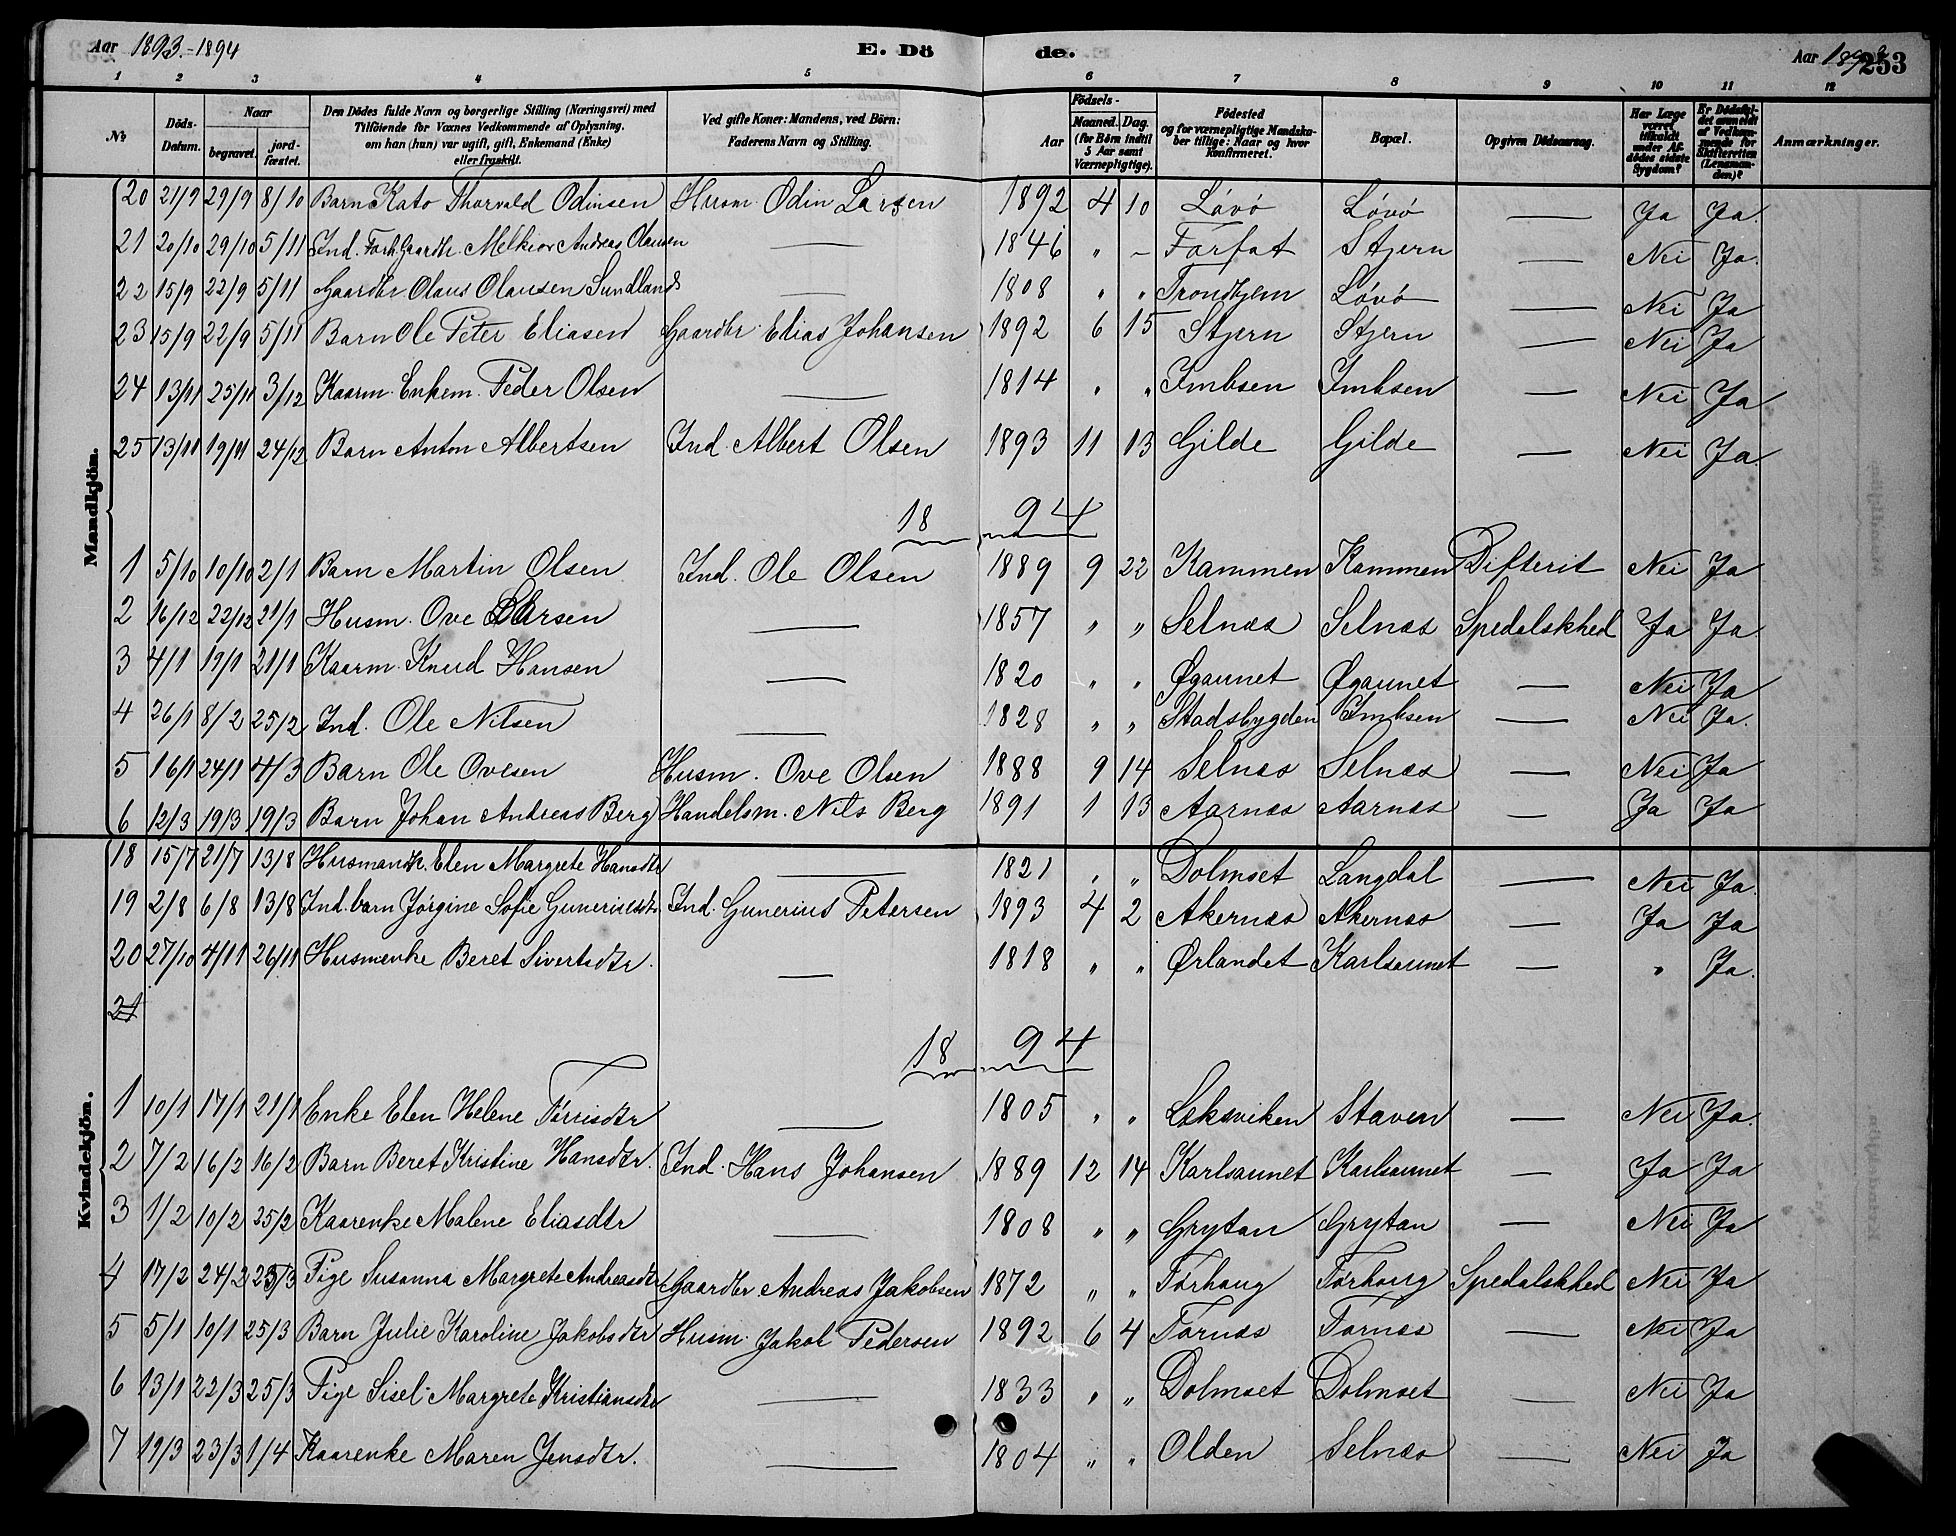 Aar 1893.-1894 E. Dö de. Aar 253
1 2 3 4 5 6 7 8 9 10 11 12
No Döds-Datum. Naar begravet. jord-fæstet. Den Dödes fulde Navn og borgerlige Stilling (Næringsvei) med Tilföiende for Voxnes Vedkommende af Oplysning, om han (hun) var ugift, gift, Enkemand (Enke) eller fraskilt. Ved gifte Koner: Mandens, ved Börn: Faderens Navn og Stilling. Aar Födsels-Maaned. Dag. (for Börn indtil 5 Aar samt Værnepligtige). Födested og for værnepligtige Mandskaber tillige: Naar og hvor konfirmeret. Bopæl. Opgiven Dödsaarsag. Har Læge været tilkaldt under Afdödes sidste Sygdom? Er Dödsfaldet anmeldt af Vedkommende for Skifteretten (Lensmanden)? Anmærkninger.
Mandkjön.
20 21/9 29/9 8/10 Barn Kato Thorvald Odinsen Husm. Odin Larsen 1892 4 10 Lövö Lövö — Ja Ja.
21 20/10 29/10 5/11 Ind. Forh. Gaardbr. Melkior Andreas Olausen — 1846 " – Forfot Stjern — Nei Ja.
22 15/9 22/9 5/11 Gaardbr. Olaus Olausen Sundland — 1808 " " Trondhjem Lövö — Nei Ja
23 15/9 22/9 5/11 Barn Ole Peter Eliasen Gaardbr. Elias Johansen 1892 6 15 Stjern Stjern — Nei Ja
24 13/11 25/11 3/12 Kaarm. Enkem. Peder Olsen — 1814 " " Imbsen Imbsen — Nei Ja
25 13/11 19/11 24/12 Barn Anton Albertsen Ind. Albert Olsen 1893 11 13 Gilde Gilde — Nei Ja.
18 94
1 5/10 10/10 2/1 Barn Martin Olsen Ind. Ole Olsen 1889 9 22 Kammen Kammen Difterit Nei Ja
2 16/12 22/12 21/1 Husm. Ove Larsen — 1857 " " Selnæs Selnæs Spedalskhed Ja Ja
3 4/1 19/1 21/1 Kaarm. Knud Hansen — 1820 " " Øgaunet Øgaunet — Nei Ja
4 26/1 8/2 25/2 Ind. Ole Nilsen — 1828 " " Stadsbygden Imbsen — Nei Ja.
5 16/1 24/1 4/3 Barn Ole Ovesen Husm. Ove Olsen 1888 9 14 Selnæs Selnæs — Nei Ja
6 12/3 19/3 19/3 Barn Johan Andreas Berg Handelsm. Nils Berg 1891 1 13 Aarnæs Aarnæs — Ja Ja
Kvindekjön.
18 15/7 21/7 13/8 Husmandsk. Elen Margrete Hansdtr — 1821 " " Dolmset Langdal — Nei Ja.
19 2/8 6/8 13/8 Ind. barn Jørgine Sofie Guneriusdtr Ind. Gunerius Petersen 1893 4 2 Akernæs Akernæs — Ja Ja
20 27/10 4/11 26/11 Husmenke Beret Sivertsdtr. — 1818 " " Ørlandet Karlsaunet — " Ja.
21
18 94
1 10/1 17/1 21/1 Enke Elen Helene Tørrisdtr — 1805 " " Leksviken Staven — Nei Ja.
2 7/2 16/2 16/2 Barn Beret Kristine Hansdtr. Ind. Hans Johansen 1889 12 14 Karlsaunet Karlsaunet — Ja Ja
3 1/2 10/2 25/2 Kaarenke Malene Eliasdtr — 1808 " " Grytan Grytan — Nei Ja
4 17/2 24/2 25/3 Pige Susanna Margrete Andreasdtr Gaardbr. Andreas Jakobsen 1872 " " Tørhaug Tørhaug Spedalskhed Nei Ja
5 5/1 10/1 25/3 Barn Julie Karoline Jakobsdtr Husm. Jakob Pedersen 1892 6 4 Tørnæs Tørnæs — Nei Ja
6 13/1 22/3 25/3 Pige Sisel Margrete Kristiansdtr — 1833 " " Dolmset Dolmset — Nei Ja
7 19/3 23/3 1/4 Kaarenke Maren Jensdtr. — 1804 " " Olden Selnæs — Nei Ja